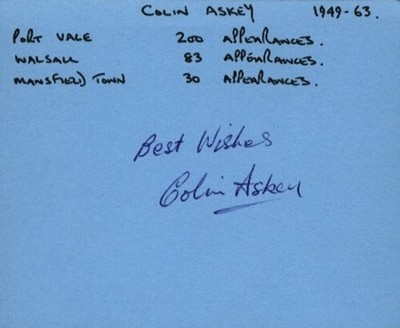 COLIN ASKEY 1949-63.
PORT VALE 200 APPEARANCES.
WALSALL 83 APPEARANCES.
MANSFIELD TOWN 30 APPEARANCES.
Best Wishes
Colin Askey